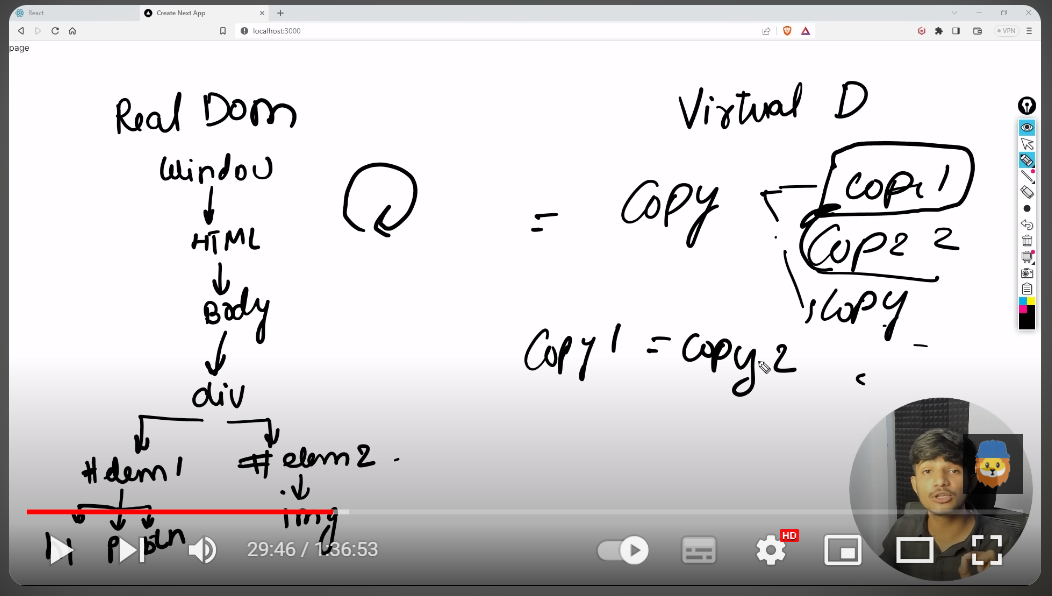 React
Create Next App
localhost:3000
VPN
page
Real DOM
Window
HTML
Body
div
#elem1
# elem2
img
Virtual D
= Copy
Cop2 2
Copy 1 = Copy 2
HD
29:46 / 1:36:53